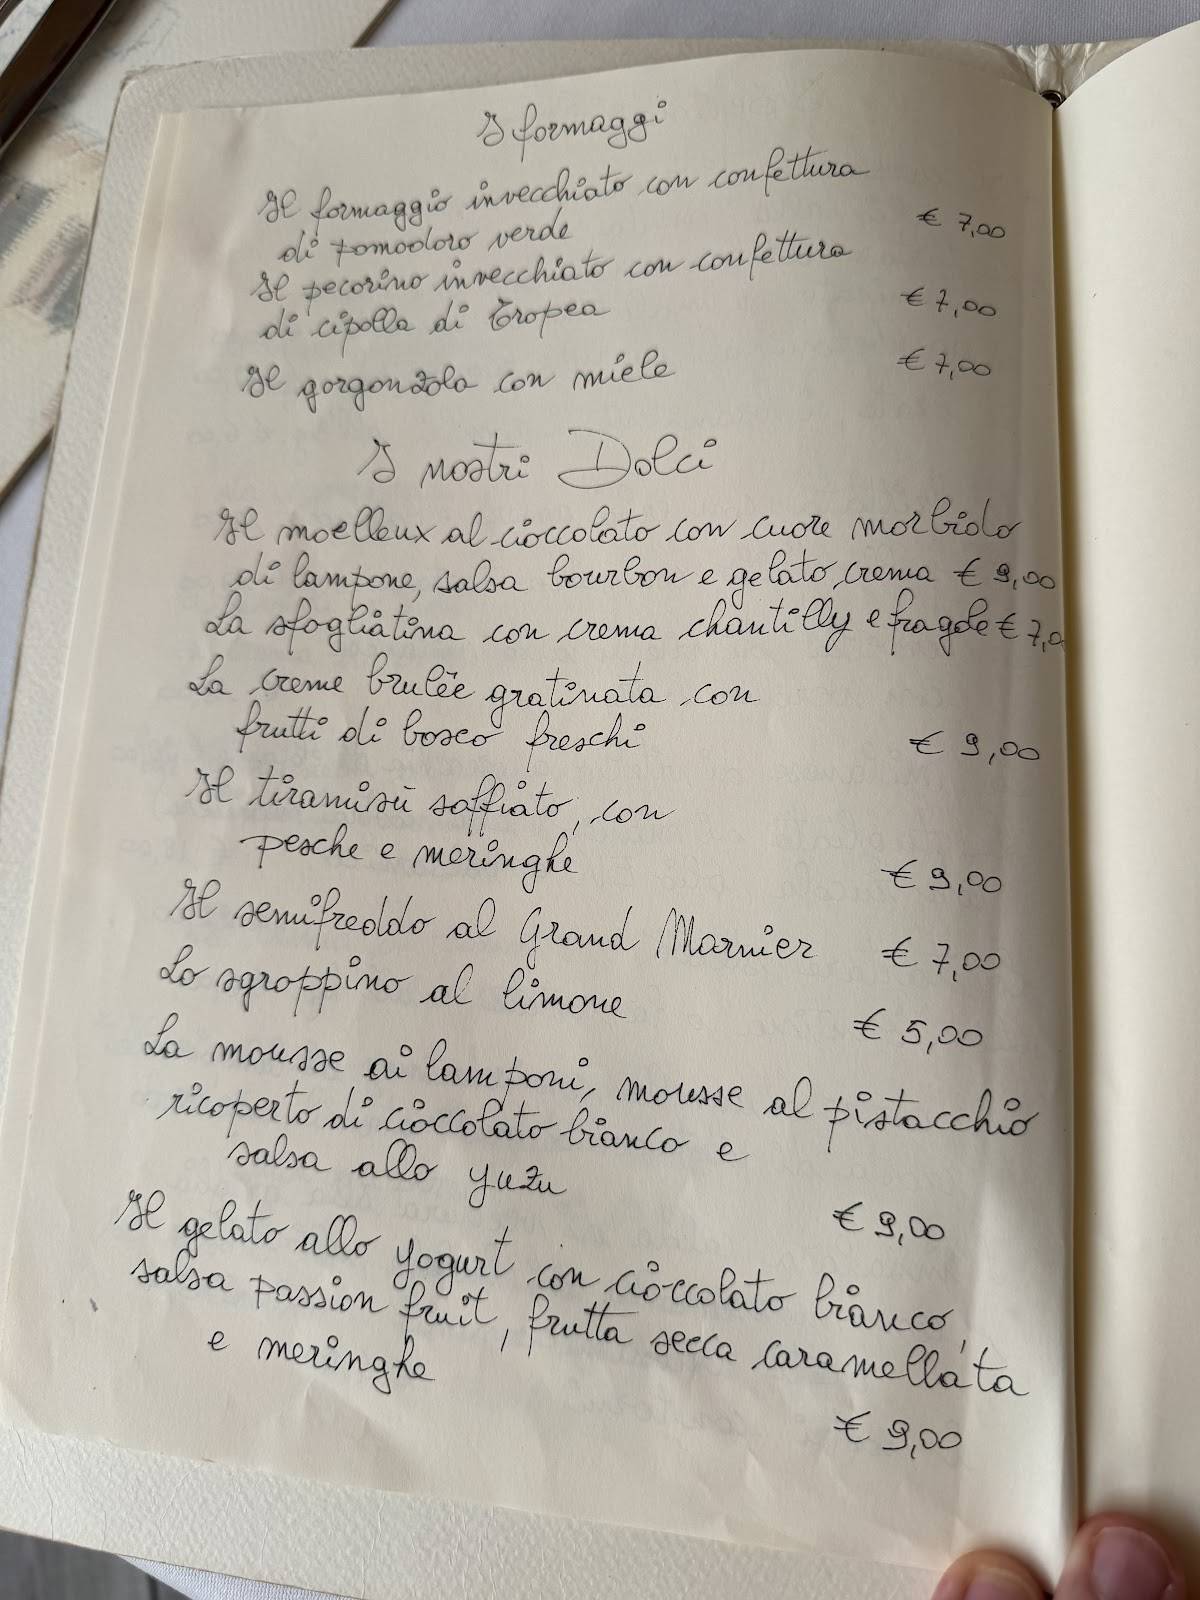 I formaggi
Il formaggio invecchiato con confettura
di pomodoro verde € 7,00
Il pecorino invecchiato con confettura
di cipolla di Tropea € 7,00
Il gorgonzola con miele € 7,00
I nostri Dolci
Il moelleux al cioccolato con cuore morbido
di lampone, salsa bourbon e gelato crema € 9,00
La sfogliatina con crema chantilly e fragole € 7,0
La creme brulée gratinata con
frutti di bosco freschi € 9,00
Il tiramisù soffiato, con
pesche e meringhe € 9,00
Il semifreddo al Grand Marnier € 7,00
Lo sgroppino al limone € 5,00
La mousse ai lamponi, mousse al pistacchio
ricoperto di cioccolato bianco e
salsa allo yuzu € 9,00
Il gelato allo yogurt con cioccolato bianco,
salsa passion fruit, frutta secca caramellata
e meringhe
€ 9,00